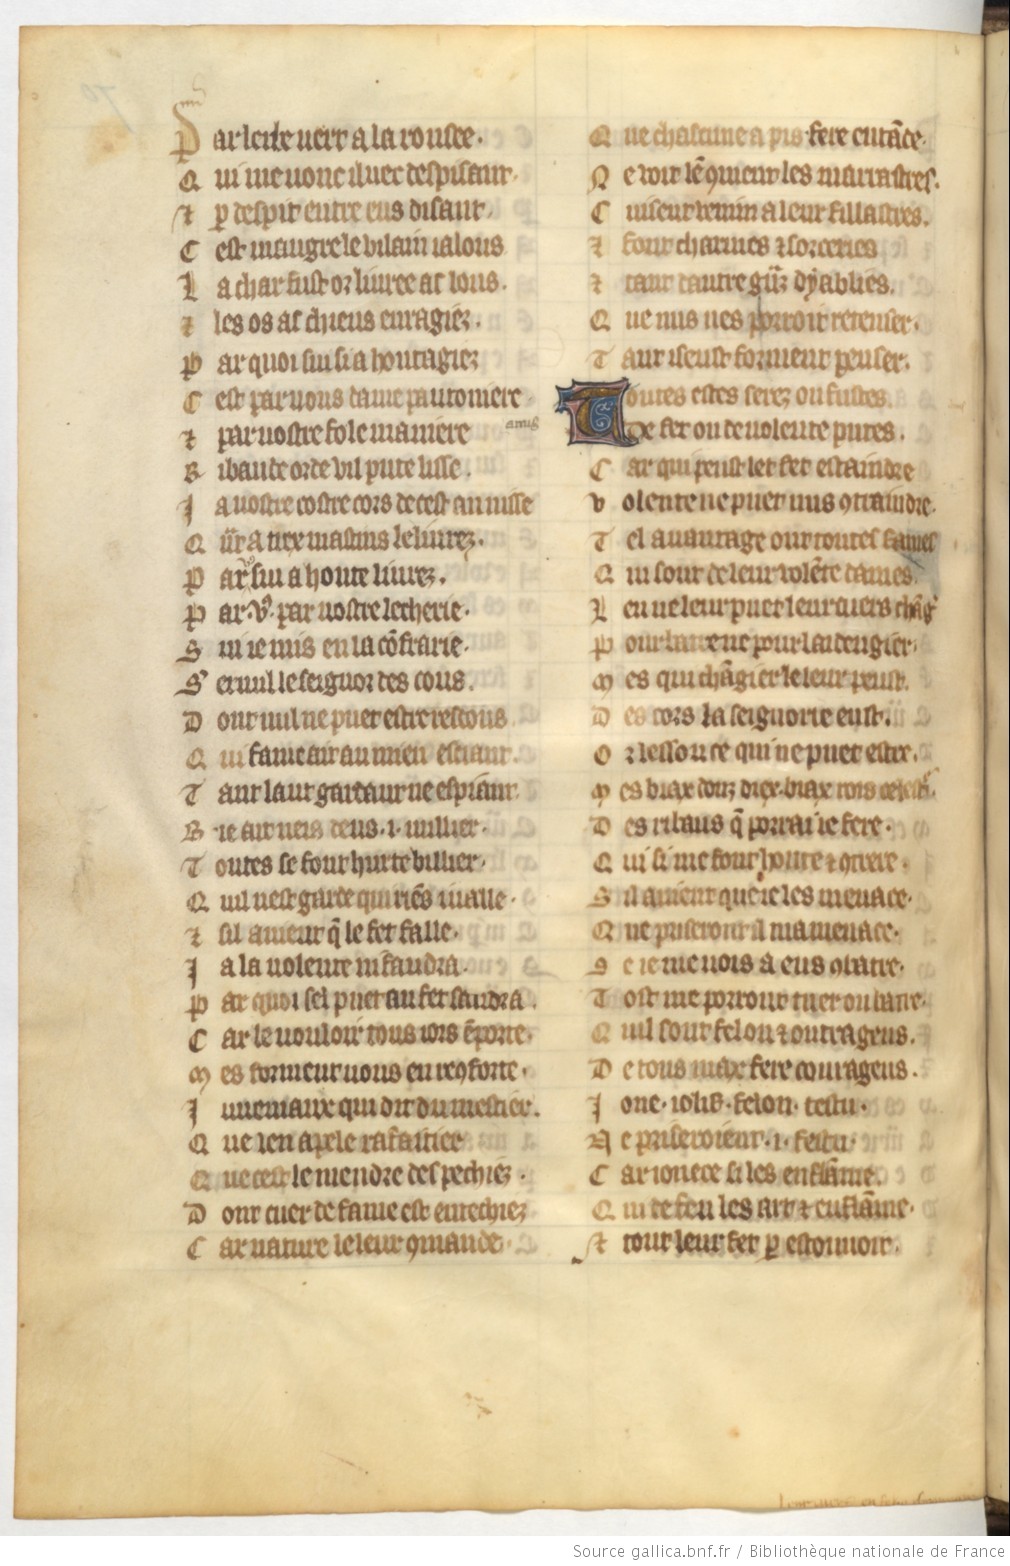 Par lerbe vert a la rousee.
Qui me vont iluec despisant.
⁊ p̱ despit entre eus disant.
Cest maugre le vilain ialous
La char fust or liuree as lous.
⁊ les os as chiens enragiez.
Par quoi sui si ahontagiez
Cest par vous dame pautoniere
⁊ par vostre fole maniere
Ribaude orde vil pute lisse.
Ja vostre cors de cest an nisse
Qñt a tiex mastins le liurez.
Par sui a honte liurez.
Par .v9. par vostre lecherie.
Sui ie mis en la cōfrarie.
Sernul le seignor des cous.
Dont nul ne puet estre rescous
Qui fame ait au mien esciant.
Tant laut gardant ne espiant.
.i. millier.
Toutes se font hurtebillier.
Quil nest garde qui riēs i vaille.
⁊ sil auient q̄ le fet faille.
Ja la volente ni faudra.
Par quoi sel puet au fet saudra.
Car le vouloir tous iors ēporte.
Mes forment vous en reꝯforte.
Juuenaux qui dit du mestier.
Que len apele rafaitier
Que cest le mendre des pechiez.
Dont cuer de fame est entechiez
Car nature le leur ꝯmande.
Que chascune a pis fere entāde.
Ne voit lē ꝯment les marrastres.
Cuisent venin a leur fillastres.
⁊ font charmes ⁊ sorceries
⁊ tant dautre gñz dyablies.
Que nus nes porroit recenser.
Tant i seust forment penser.
Toutes estes serez ou fustes.
De fet ou de volente putes.
Car qui peust les fet estaindre
Volente ne puet nus ꝯtraindre.
Tel auantage ont toutes fames
Qui sont de leur volēte dames.
Len ne leur puet leur cuers chāg̓
Pour batre ne pour laidengier.
Mes qui chāgier le leur peust.
Des cors la seignorie eust.
Or lessons ce qui ne puet estre.
Mes biax douz diex. biax rois celest̓.
Des ribaus q̄ porrai ie fere.
Qui si me font honte ⁊ ꝯtrere.
Sil auient que ie les menace.
Que priseront il ma menace.
Se ie me vois a eus ꝯbatre.
Tost me porront tuer ou batre.
Quil sont felon ⁊ outrageus.
De tous max fere courageus.
Jone. iolif. felon. testu.
Ne priseroient .i. festu.
Car ionece si les enflāme.
Qui de feu les art ⁊ enflāme.
⁊ tout leur fet p̱ estouuoir.
Source gallica.bnf.fr / Bibliothèque nationale de France